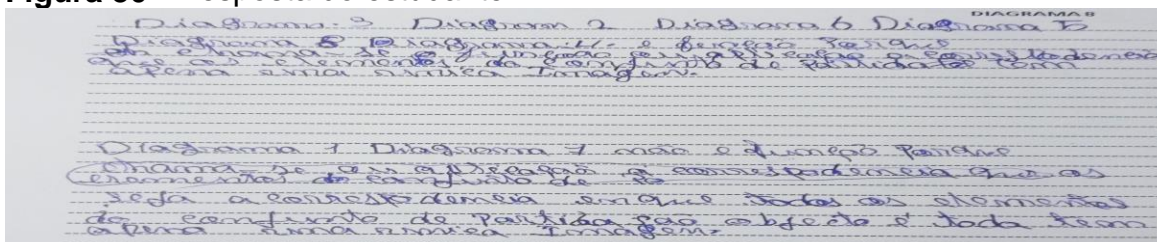 DIAGRAMA 8
Diagrama 3 Diagrama 2 Diagrama 6 Diagrama 5
Diagrama 8 Diagrama 4 é função Porque
chama se função ou aplicação a correspodencia
que os elementos do conjunto de Partida tem
apena uma uniica Imagem.
Diagrama 1 Diagrama 7 não e função Porque
chama se ou aplicação a correspodencia que os
eramentos do conjunto de
seja a correspodencia em que todos os elementos
do conjunto de Partida são objecto e toda tem
apena uma unica Imagem.